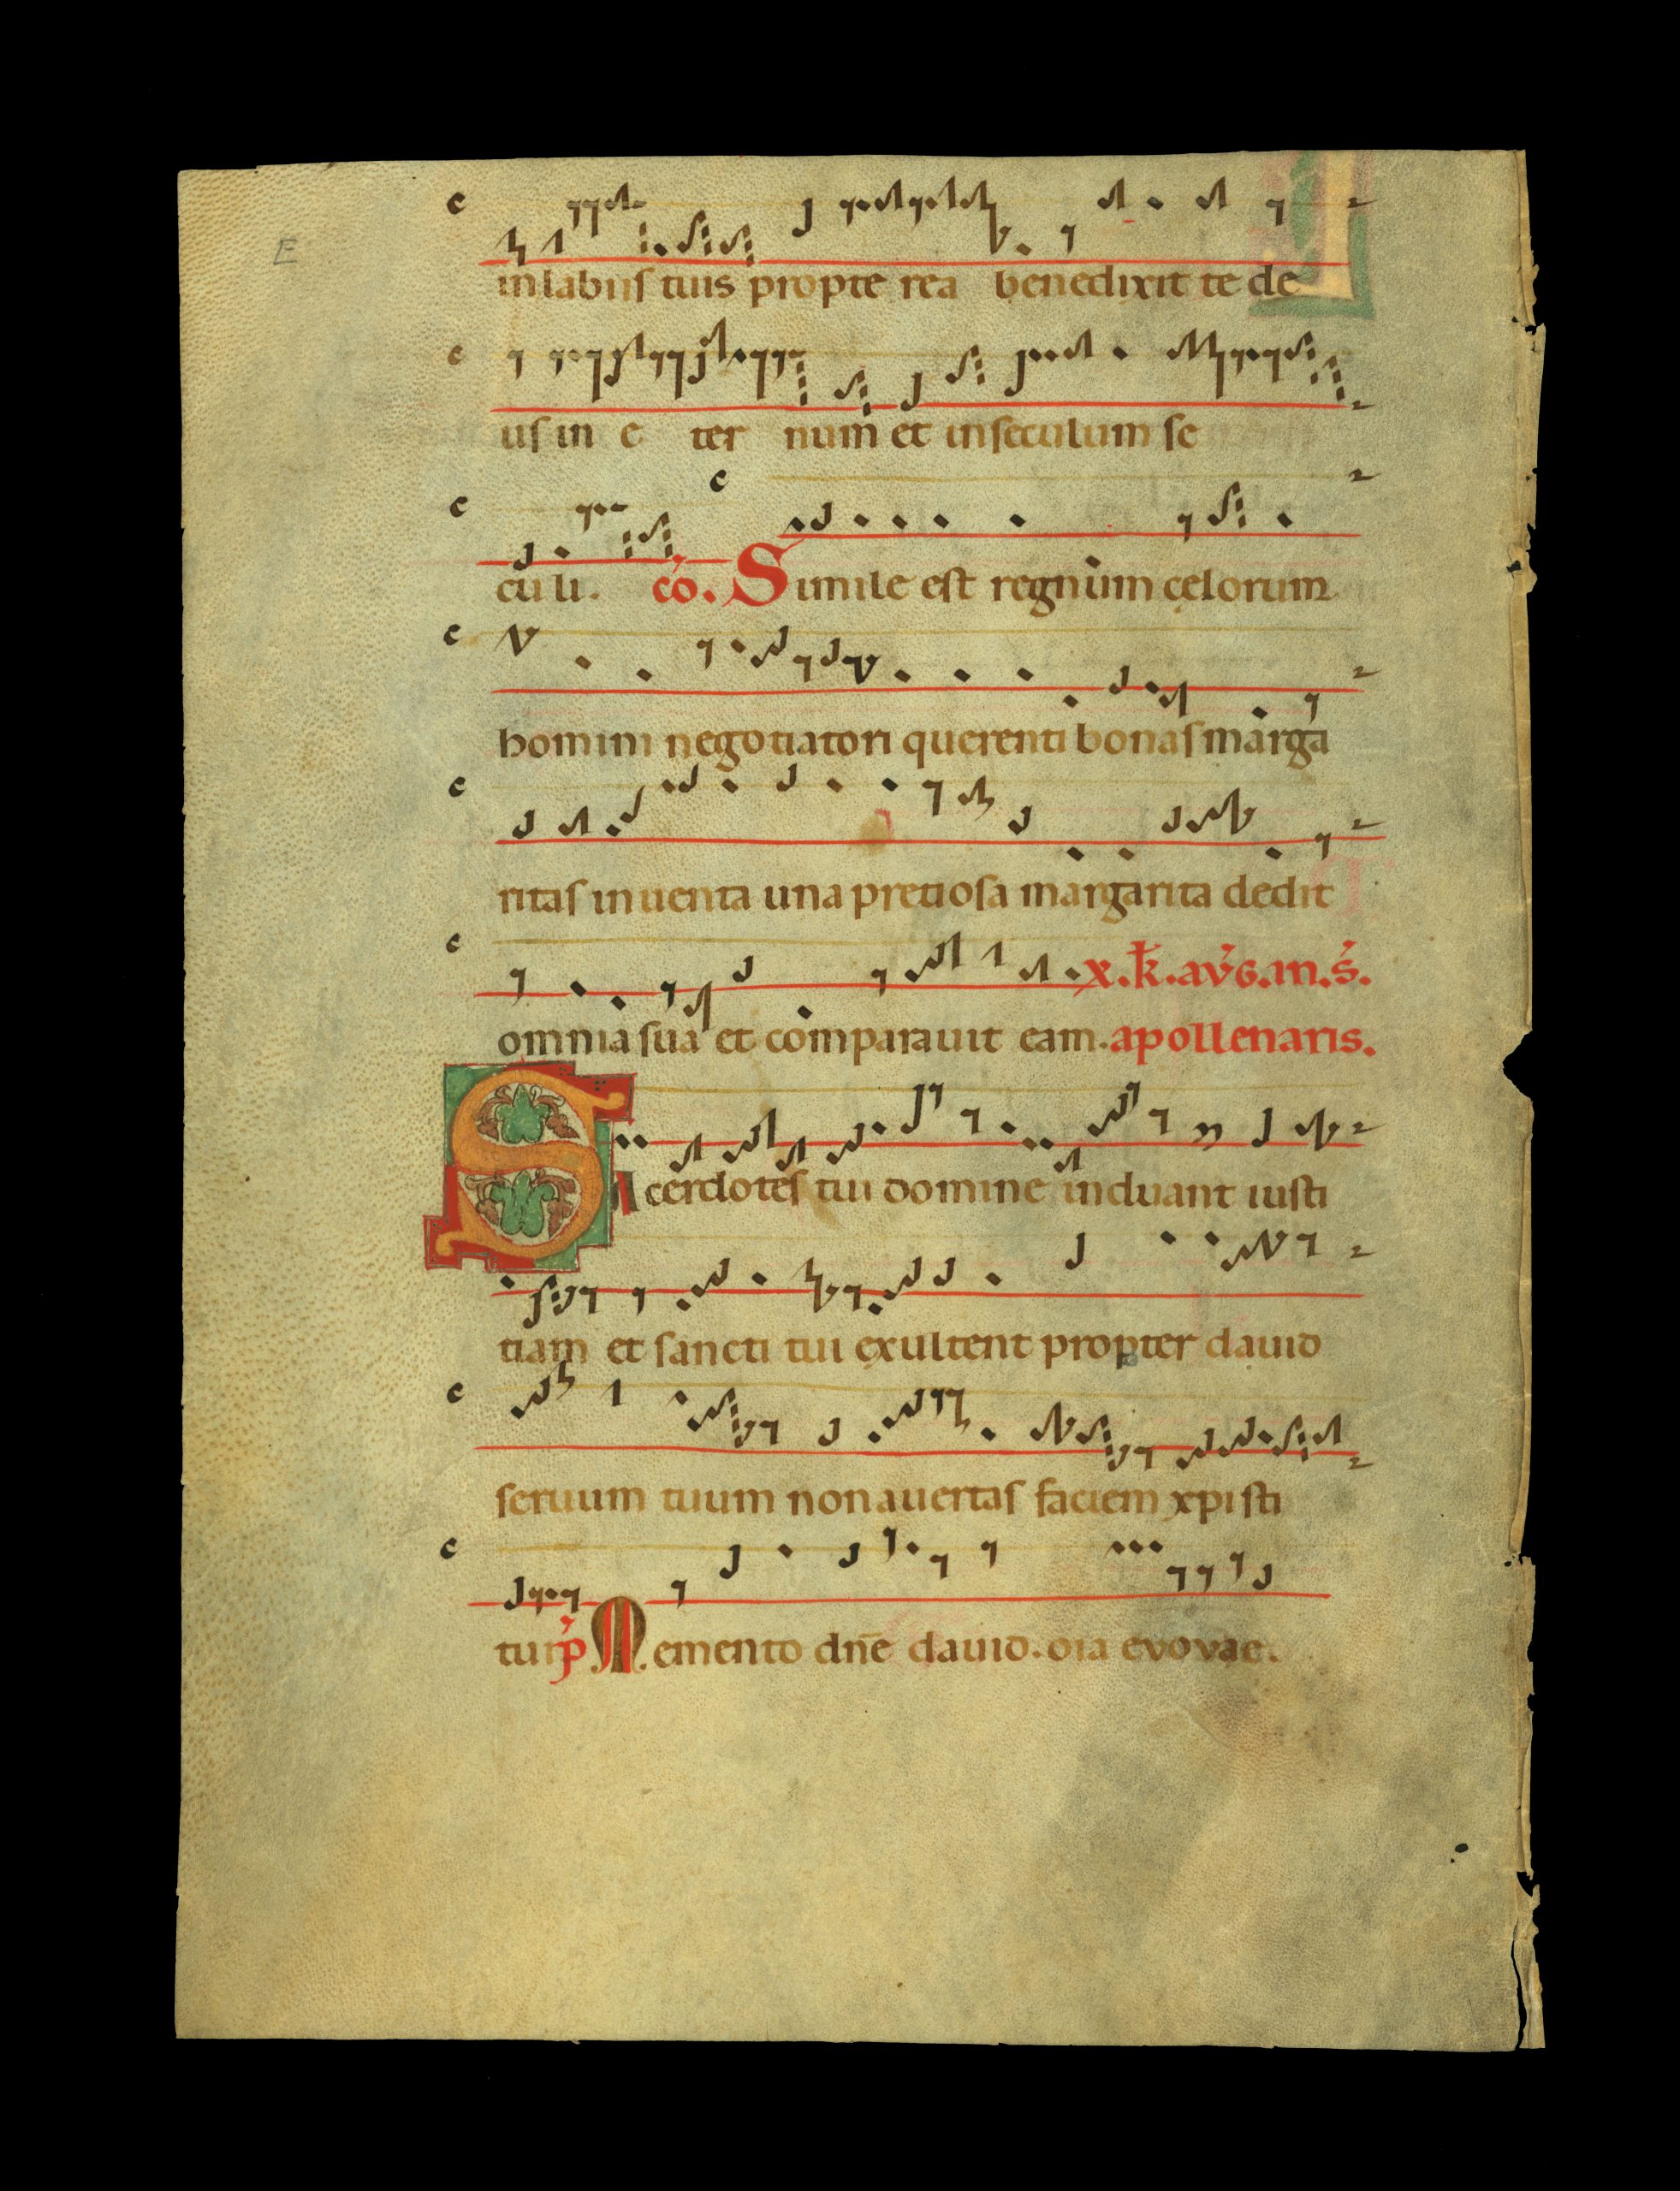 E
in labiis tuis propte rea benedixit te de
us in e ter num et in seculum se
culi. co. Simile est regnum celorum
homini negotiatori querenti bonas marga
ritas inuenta una pretiosa margarita dedit
omnia sua et comparauit eam. x. k. aug. m. s.
apollenaris.
Sacerdotes tui domine induant iusti
tiam et sancti tui exultent propter dauid
seruum tuum non auertas faciem xpisti
tui p Memento dne dauid. oia evovae.